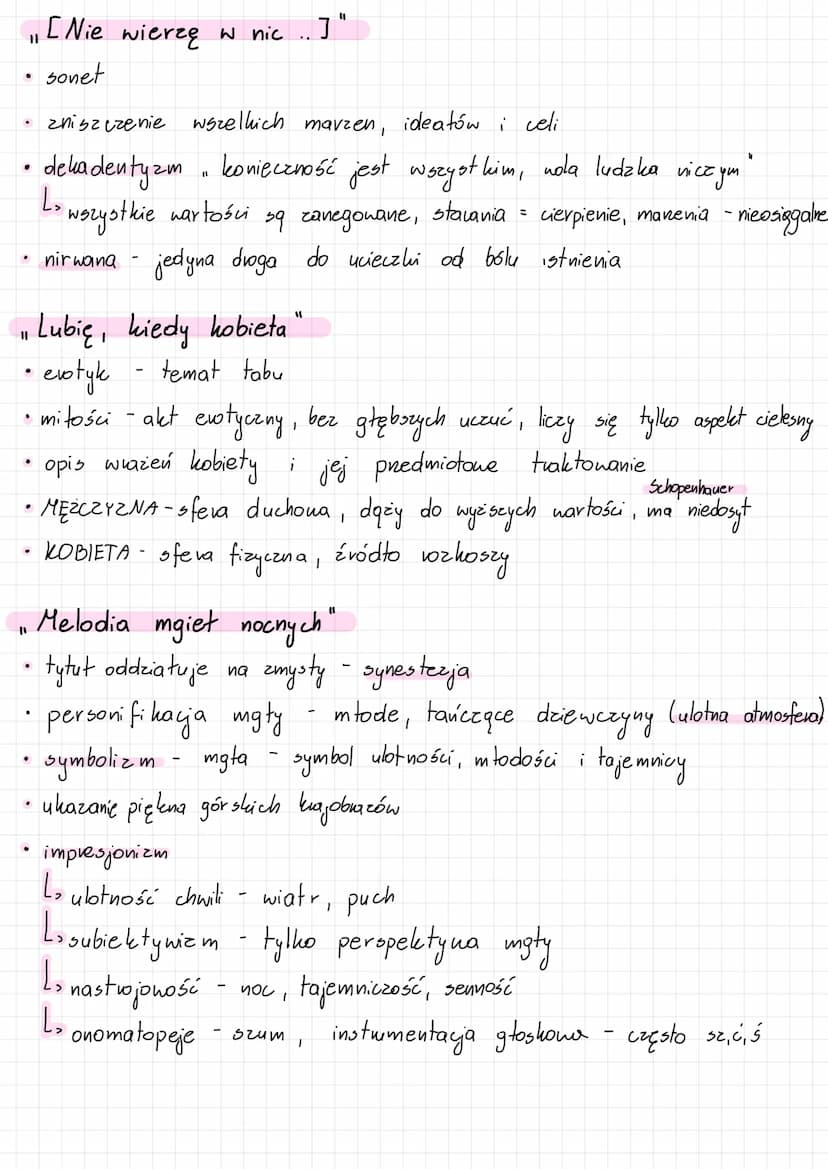 „[Nie wierzę w nic ..]"
• sonet
• zniszczenie wszelkich marzen, ideałów i celi
• dekadentyzm „konieczność jest wszystkim, wola ludzka niczym"
↳ wszystkie wartości są zanegowane, starania = cierpienie, marzenia - nieosiągalne
• nirwana - jedyna droga do ucieczki od bólu istnienia
„Lubię, kiedy kobieta"
• erotyk - temat tabu
• miłości - akt erotyczny, bez głębszych uczuć, liczy się tylko aspekt cielesny
• opis wrażeń kobiety i jej przedmiotowe traktowanie
Schopenhauer
• MĘŻCZYZNA - sfera duchowa, dąży do wyższych wartości, ma niedosyt
• KOBIETA - sfera fizyczna, źródło rozkoszy
„Melodia mgieł nocnych"
• tytuł oddziałuje na zmysły - synestezja
• personifikacja mgły - młode, tańczące dziewczyny (ulotna atmosfera)
• symbolizm - mgła - symbol ulotności, młodości i tajemnicy
• ukazanie piękna górskich krajobrazów
• impresjonizm
↳ ulotność chwili - wiatr, puch
↳ subiektywizm - tylko perspektywa mgły
↳ nastrojowość - noc, tajemniczość, senność
↳ onomatopeje - szum, instrumentacja głoskowa - często sz,ć,ś